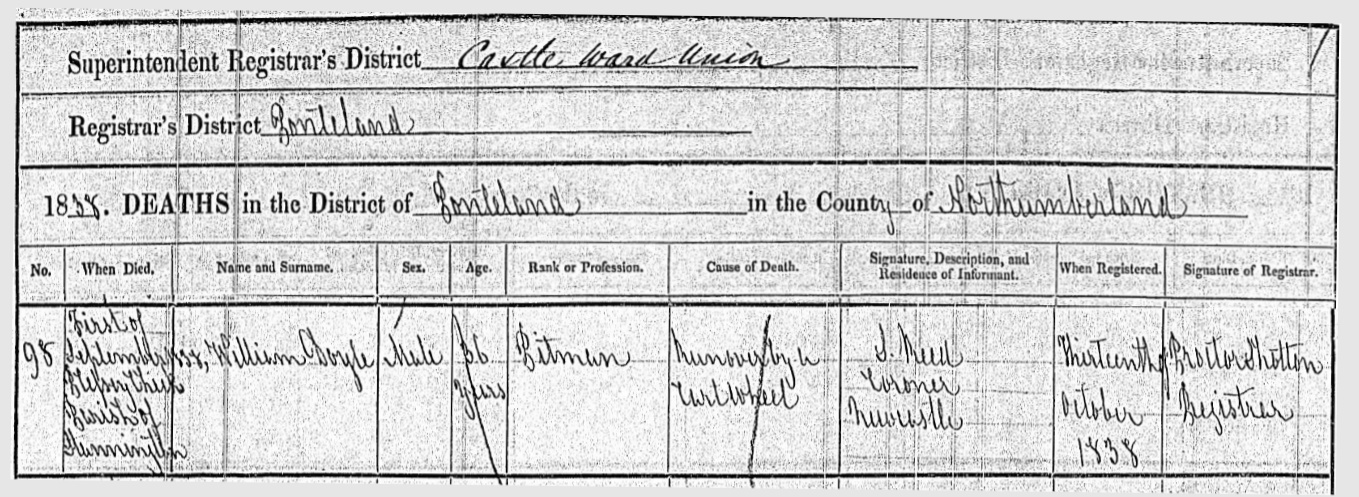 Superintendent Registrar's District Castle Ward Union
Registrar's District Ponteland
1838. DEATHS in the District of Ponteland in the County of Northumberland
No. When Died. Name and Surname. Sex. Age. Rank or Profession. Cause of Death. Signature, Description, and Residence of Informant. When Registered. Signature of Registrar.
98 First of William Male 36 Pitman Run over by a S. Reed Thirteenth of Proctor Shotton
September 1838, Years Cart Wheel Coroner October Registrar
Parish of Newcastle 1838
Stannington